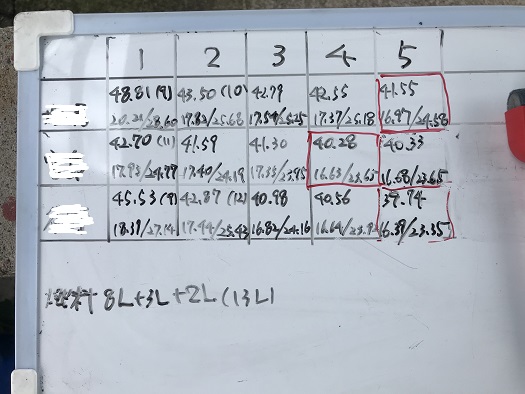 1 2 3 4 5
48.81 (9) 43.50 (10) 42.79 42.55 41.55
20.21/28.60 17.82/25.68 17.54/25.25 17.37/25.18 16.97/24.58
42.70 (11) 41.59 41.30 40.28 40.33
17.93/24.77 17.40/24.19 17.35/23.95 16.63/23.65 16.68/23.65
45.53 (9) 42.87 (12) 40.98 40.56 39.74
18.39/27.14 17.44/25.43 16.82/24.16 16.64/23.92 16.39/23.35
8L+3L+2L (13L)